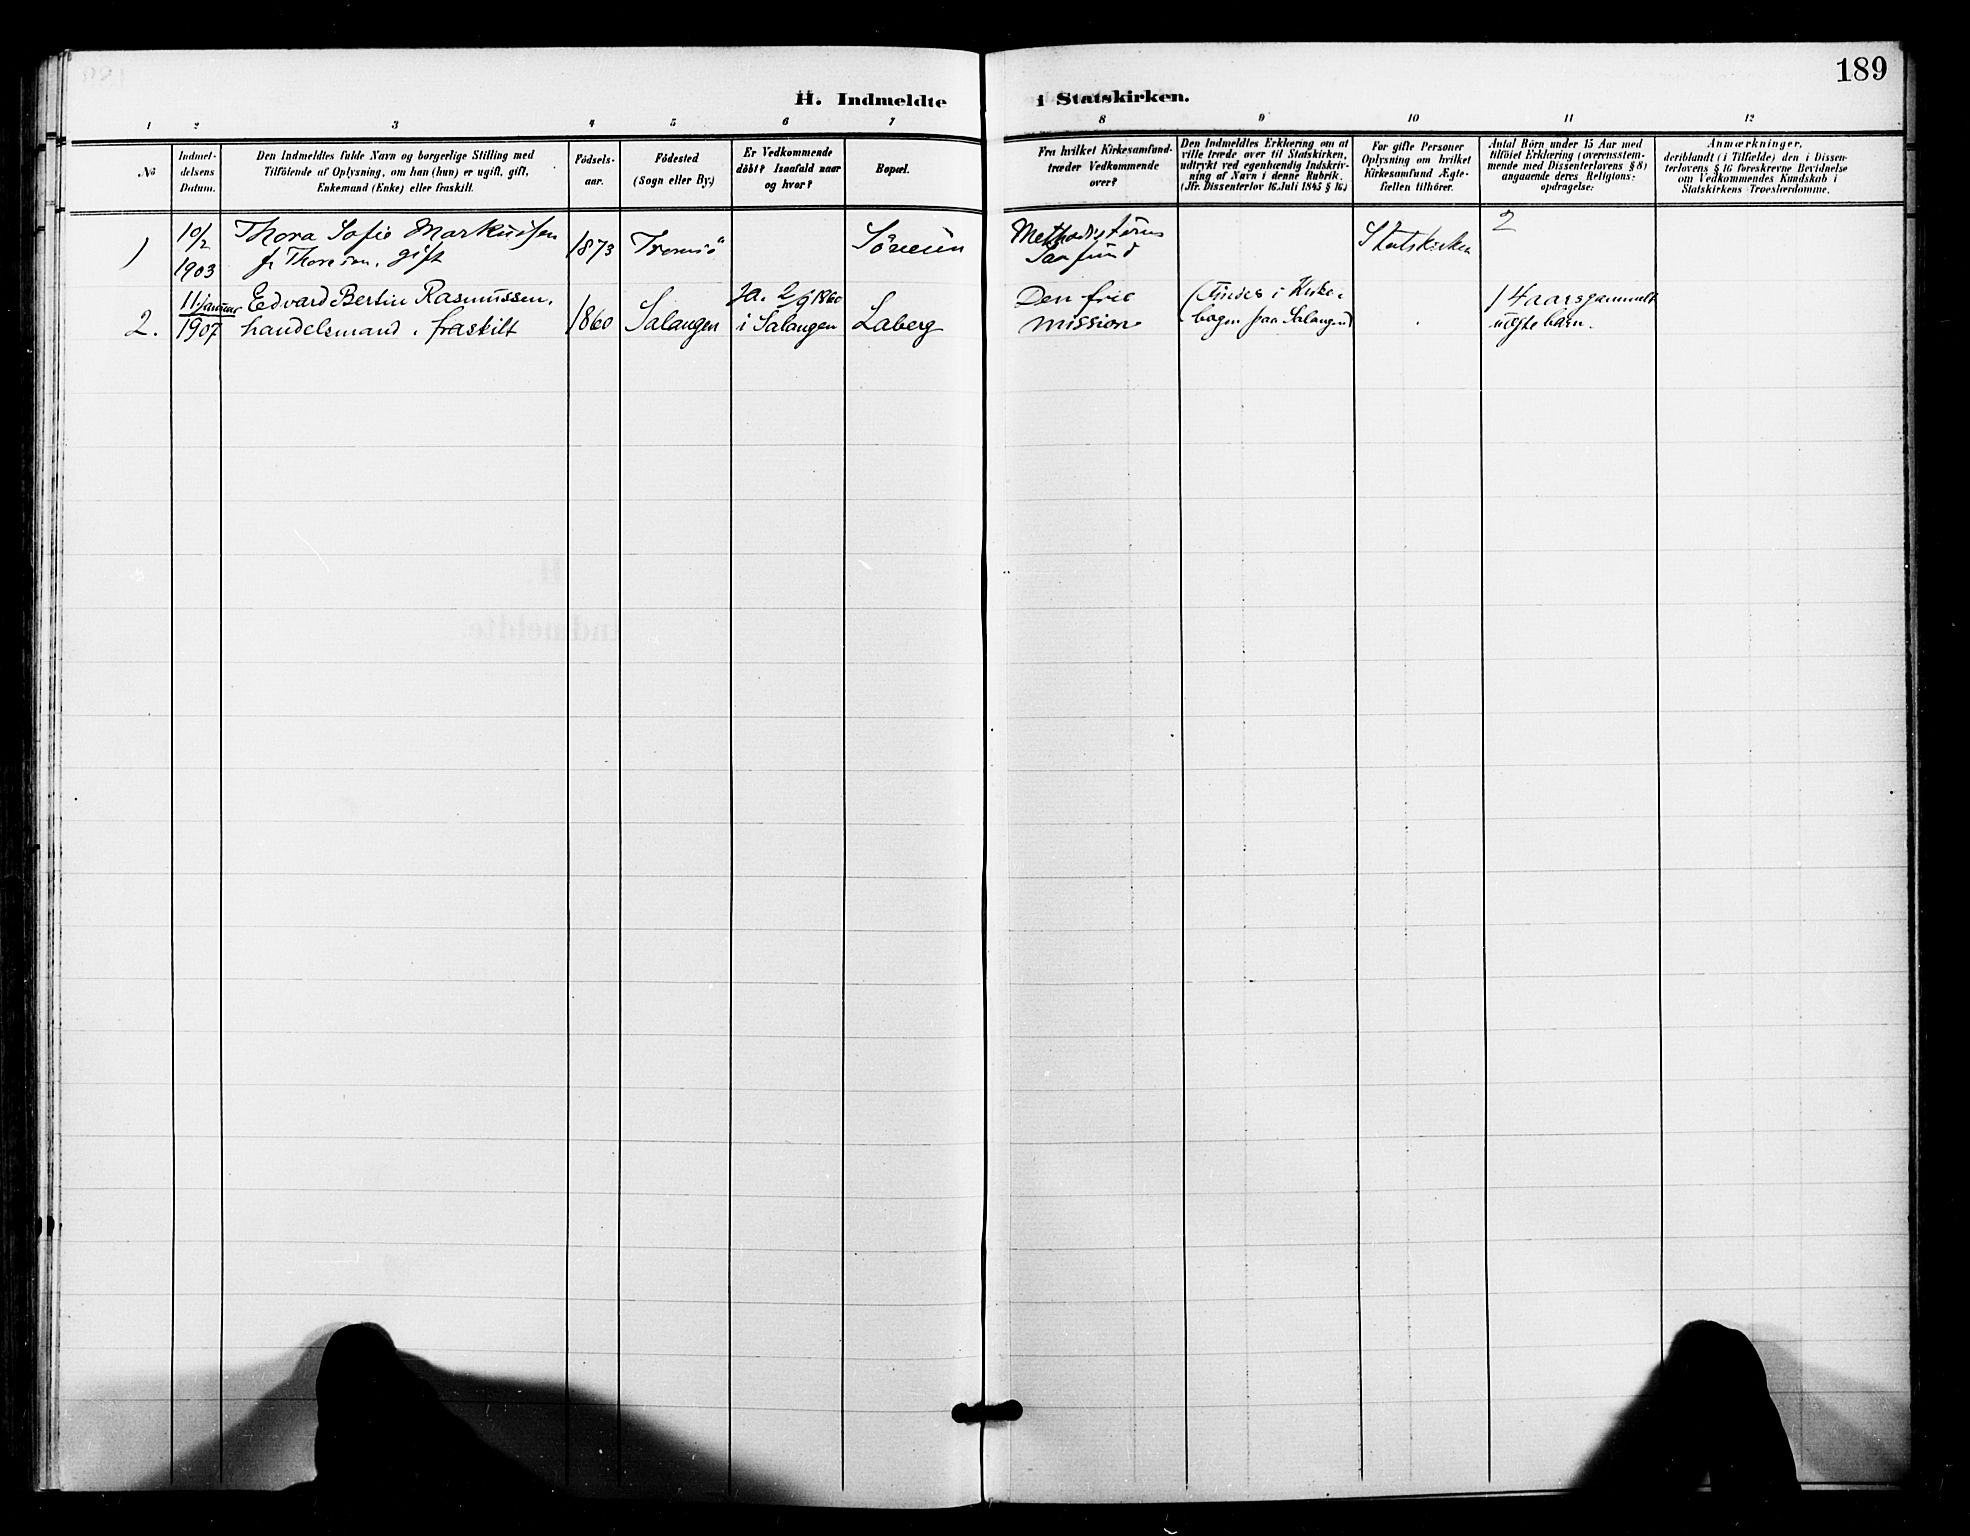 189
H. Indmeldte i Statskirken.
1 2 3 4 5 6 7 8 9 10 11 12
No
Indmel-
delsens
Datum.
Den Indmeldtes fulde Navn og borgerlige Stilling med
Tilföiende af Oplysning, om han (hun) er ugift, gift,
Enkemand (Enke) eller fraskilt.
Födsels-
aar.
Födested
(Sogn eller By.)
Er Vedkommende
döbt? Isaafald naar
og hvor?
Bopæl.
Fra hvilket Kirkesamfund
træder Vedkommende
over?
Den Indmeldtes Erklæring om at
ville træde over til Statskirken,
udtrykt ved egenhændig Indskriv-
ning af Navn i denne Rubrik.
(Jfr. Dissenterlov 16. Juli 1845 § 16)
For gifte Personer
Oplysning om hvilket
Kirkesamfund Ægte-
fællen tilhörer.
Antal Börn under 15 Aar med
tilföiet Erklæring (overensstem-
mende med Dissenterlovens § 8)
angaaende deres Religions-
opdragelse:
Anmærkninger,
deriblandt (i Tilfælde) den i Dissen-
terlovens § 16 foreskrevne Bevidnelse
om Vedkommendes Kundskab i
Statskirkens Troeslærdomme.
1
10/2
1903
Thora Sofie Markussen
f. Thoresen, gift
1873
Tromsö
Methodisternes
Samfund
Statskirken
2
2.
11. januar
1907
Edvard Bertin Rasmussen,
handelsmand, fraskilt
1860
Salangen
Ja. 2/9 1860
i Salangen
Laberg
Den frie
mission
(Findes i Kirke-
bogen for Salangen)
1 4 aarsgammelt
uægte barn.